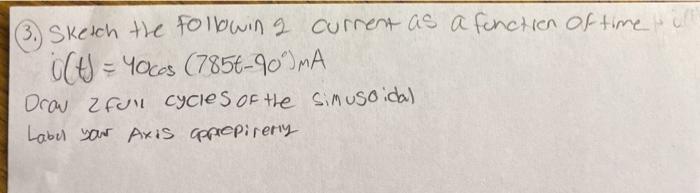 3. Sketch the following current as a function of time
i(t) = 40cos (785t-90°)mA
Draw 2 full cycles of the sinusoidal
Label your Axis